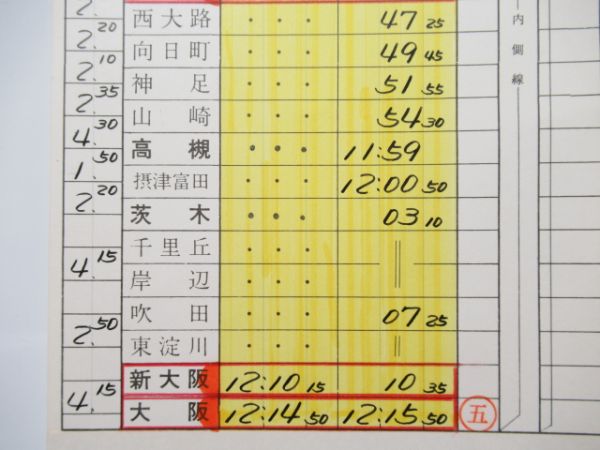 2.
西大路 • • • 47 25
2. 20
向日町 • • • 49 45
2. 10
神足 • • • 51 55
2. 35
山崎 • • • 54 30
4. 30
高槻 • • • 11:59
1. 50
摂津富田 • • • 12:00 50
2. 20
茨木 • • • 03 10
千里丘 • • • ||
4. 15
岸辺 • • •
吹田 • • • 07 25
2. 50
東淀川 • • • ||
新大阪 12:10 15 10 35
4. 15
大阪 12:14 50 12:15 50 五
内側線